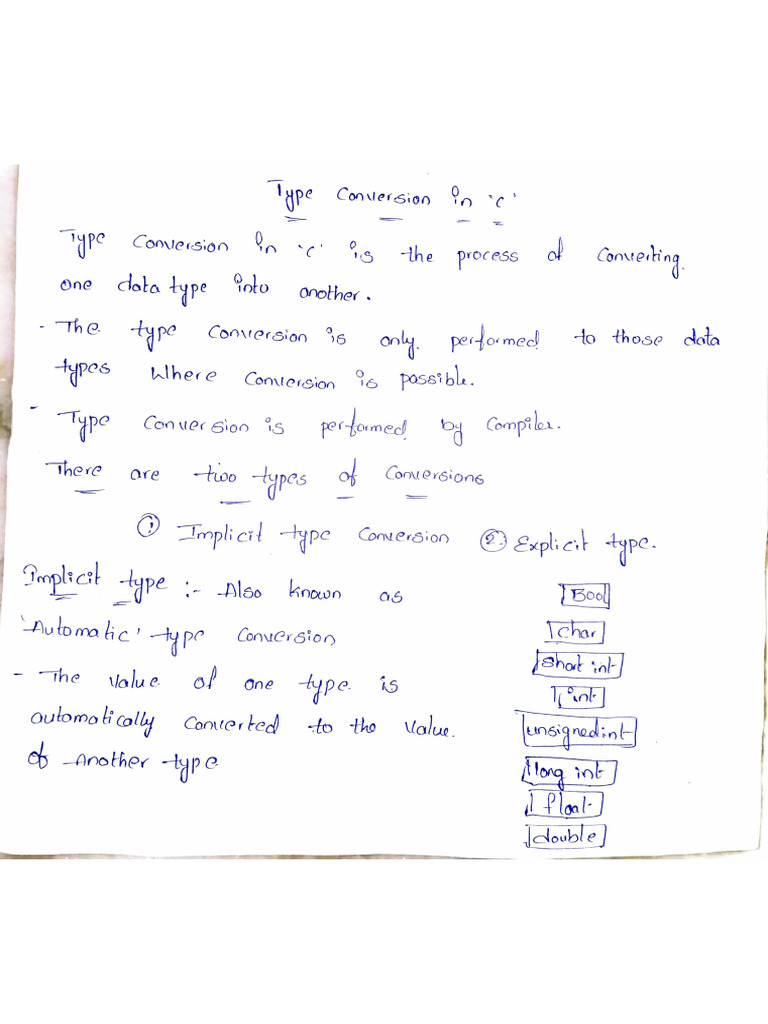 Type Conversion in 'c'
Type Conversion in 'c' is the process of Converting
one data type into another.
- The type Conversion is only performed to those data
types Where Conversion is possible.
- Type Conversion is performed by Compiler.
There are two types of Conversions
① Implicit type Conversion ② Explicit type.
Implicit type :- Also known as
'Automatic' type Conversion
- The value of one type is
automatically Converted to the value.
of Another type
Bool
char
short int
int
unsigned int
long int
float
double